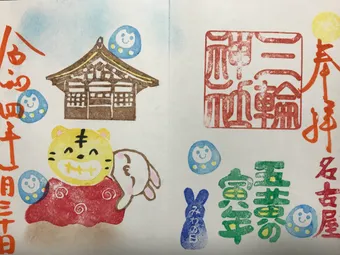 奉拝
名古屋
三輪
神社
五黄の
寅年
令和四年一月三十日